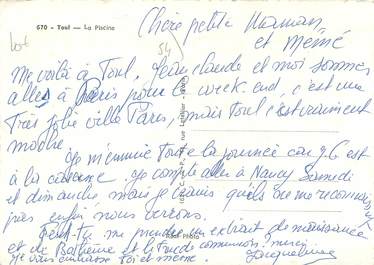 670 - Toul — La Piscine
54
Chère petite Maman
et Mémé
Me voilà à Toul, Jean claude et moi sommes
allés à Paris pour le week end, c'est une
très jolie ville Paris, mais Toul c'est vraiment
moche.
Je m'ennuie toute la journée car J.C est
à la caserne. Je compte aller à Nancy Samedi
et dimanche, mais je crains qu'ils ne me reconnaissent
pas enfin nous verrons.
Peux-tu me prendre un extrait de naissance
et de Baptême et le truc de communion. merci
Je vous embrasse toi et mémé. Jacqueline